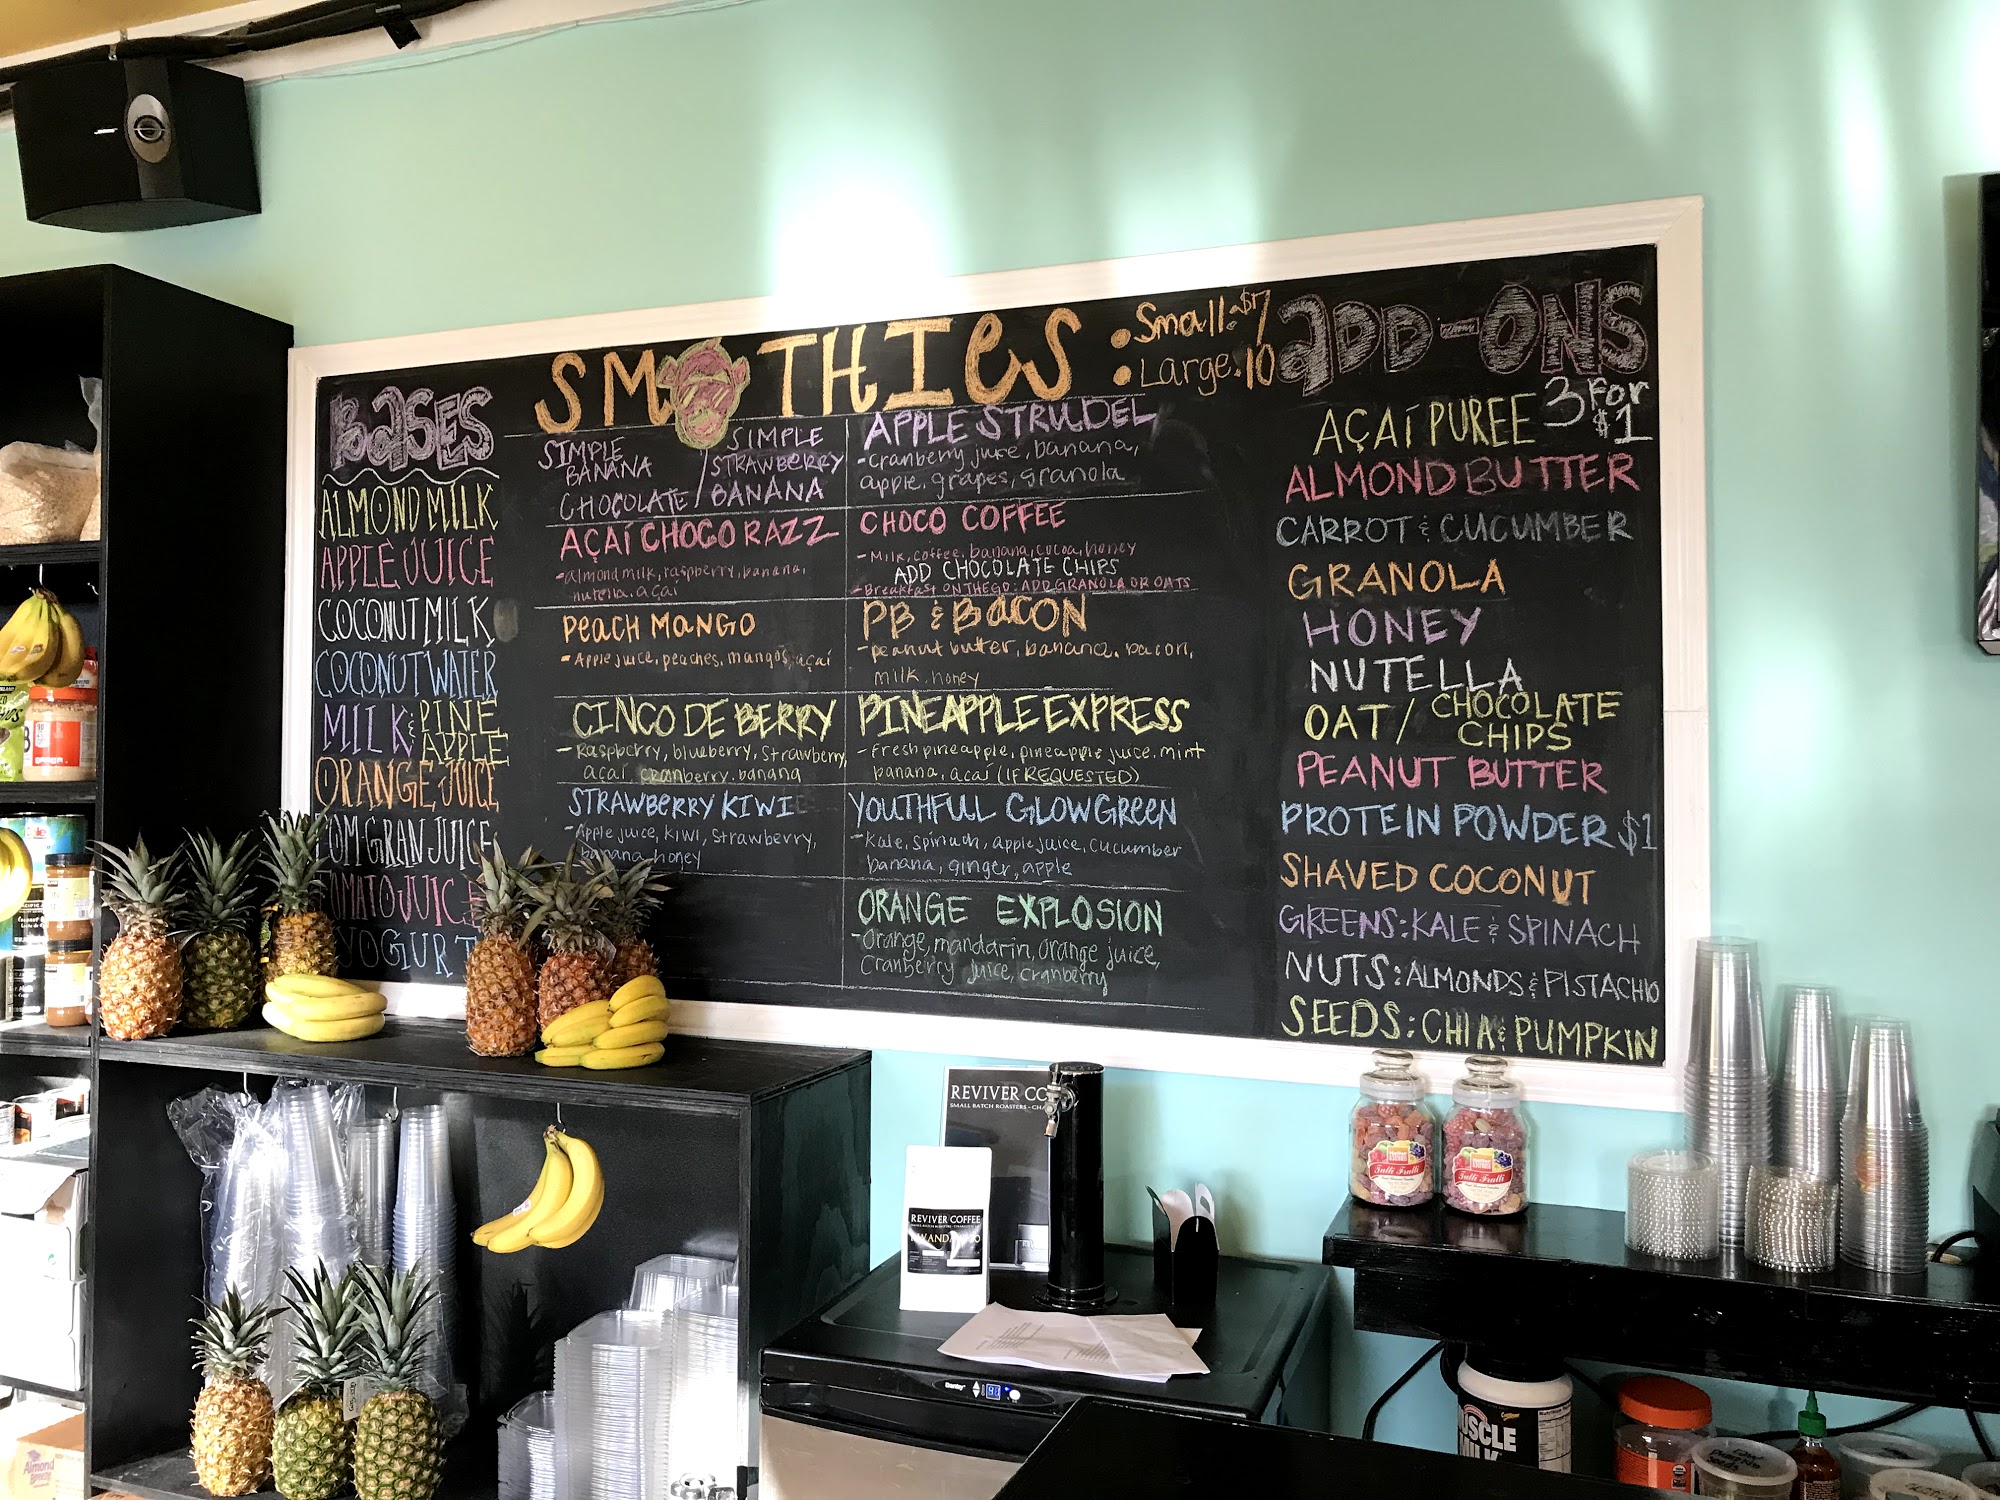 BASES
ALMOND MILK
APPLE JUICE
COCONUT MILK
COCONUT WATER
MILK & PINE
APPLE
ORANGE JUICE
POM GRAN JUICE
TOMATO JUICE
YOGURT
SMOOTHIES : Small: $7
Large: 10
SIMPLE
BANANA
CHOCOLATE /
SIMPLE
STRAWBERRY
BANANA
AÇAÍ CHOCO RAZZ
- almond milk, raspberry, banana,
nutella, açaí
PEACH MANGO
- Apple juice, peaches, mangos, açaí
CINCO DE BERRY
- Raspberry, blueberry, strawberry,
açaí, cranberry, banana
STRAWBERRY KIWI
- Apple juice, kiwi, strawberry,
banana, honey
APPLE STRUDEL
- cranberry juice, banana,
apple, grapes, granola
CHOCO COFFEE
- Milk, coffee, banana, cocoa, honey
ADD CHOCOLATE CHIPS
- Breakfast ON THE GO: ADD GRANOLA OR OATS
PB & BACON
- peanut butter, banana, bacon,
milk, honey
PINEAPPLE EXPRESS
- Fresh pineapple, pineapple juice, mint
banana, açaí (IF REQUESTED)
YOUTHFUL GLOW GREEN
- Kale, spinach, apple juice, cucumber
banana, ginger, apple
ORANGE EXPLOSION
- Orange, mandarin, orange juice,
Cranberry juice, cranberry
ADD-ONS
3 FOR
$1
AÇAÍ PUREE
ALMOND BUTTER
CARROT & CUCUMBER
GRANOLA
HONEY
NUTELLA
OAT / CHOCOLATE
CHIPS
PEANUT BUTTER
PROTEIN POWDER $1
SHAVED COCONUT
GREENS: KALE & SPINACH
NUTS: ALMONDS & PISTACHIO
SEEDS: CHIA & PUMPKIN
REVIVER CO
SMALL BATCH ROASTERS - CHA
REVIVER COFFEE
Tutti Frutti
Tutti Frutti
Danby
MUSCLE
MILK
Almond
Breeze